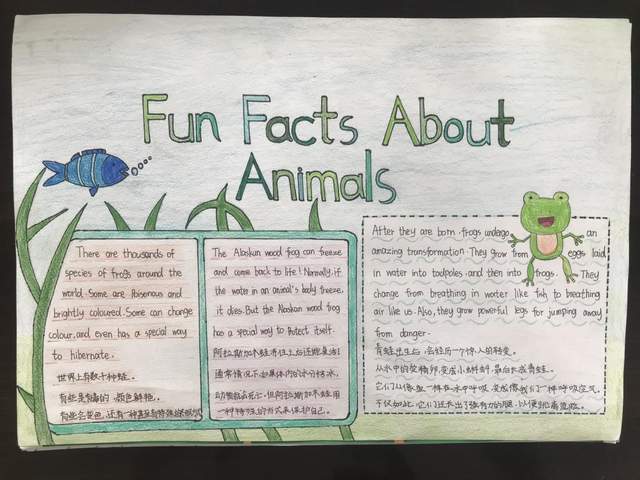 Fun Facts About
Animals
There are thousands of
species of frogs around the
world. Some are Poisenous and
brightly coloured. Some can change
colour, and even has a special way
to hibernate.
世界上有数千种蛙.
有些是有毒的.颜色鲜艳.
有些会变色,还有一种甚至有特殊的
The Alaskan wood frog can freeze
and come back to life! Normally, if
the water in an animal's body freeze,
it dies. But the Alaskan wood frog
has a special way to Protect itself.
阿拉斯加木蛙冻住之后还能复活!
通常情况下如果体内的水分结冰,
动物就会死亡.但阿拉斯加木蛙用
一种特殊的方式来保护自己.
After they are born, frogs undergo an
amazing transformation. They grow from eggs laid
in water into tadpoles, and then into frogs. They
change from breathing in water like fish to breathing
air like us. Also, they grow powerful legs for jumping away
from danger.
青蛙出生后,会经历一个惊人的转变。
从水中的受精卵,变成小蝌蚪,最后长成青蛙。
它们从像鱼一样在水中呼吸变成像我们一样呼吸空气。
不仅如此,它们还长出了强有力的腿,以便逃离危险。